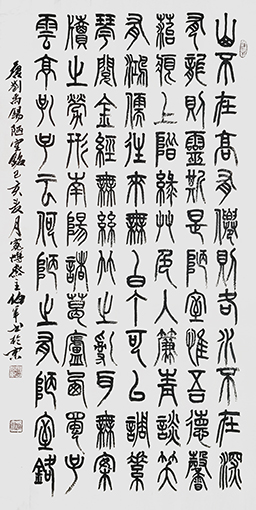 山不在高有僊則名水不在深
有龍則靈斯是陋室惟吾德馨
苔痕上階綠艸色入簾青談笑
有鴻儒往來無白丁可以調素
琴閱金經無絲竹之亂耳無案
牘之勞形南陽諸葛廬西蜀子
雲亭孔子云何陋之有陋室銘
唐劉禹錫陋室銘己亥亥月主書於京